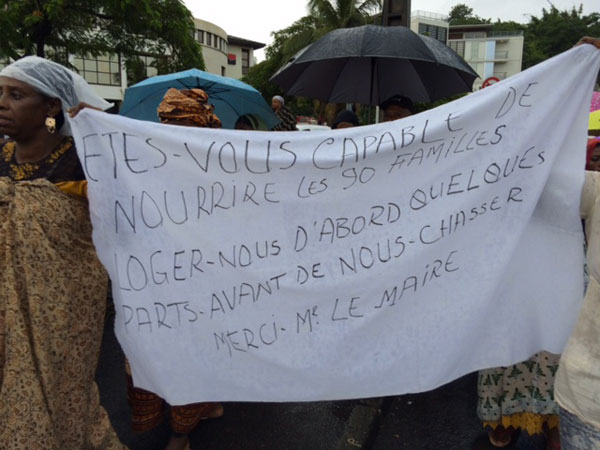 ETES-VOUS CAPABLE DE
NOURRIRE LES 90 FAMILLES
LOGER-NOUS D'ABORD QUELQUES
PARTS-AVANT DE NOUS-CHASSER
MERCI-Mr LE MAIRE